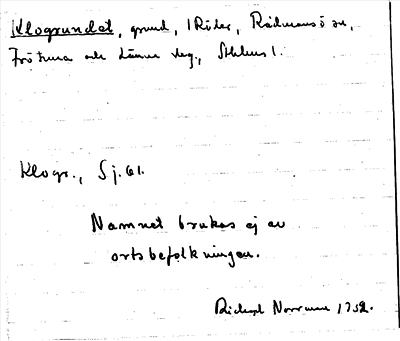 Klogrundet, grund, 1 Råder, Rådmansö sn,
Frötuna och Länna slg., Sthlms l.
Klogr., Sj. 61.
Namnet brukas ej av
ortsbefolkningen.
Richard Norrman 1932.